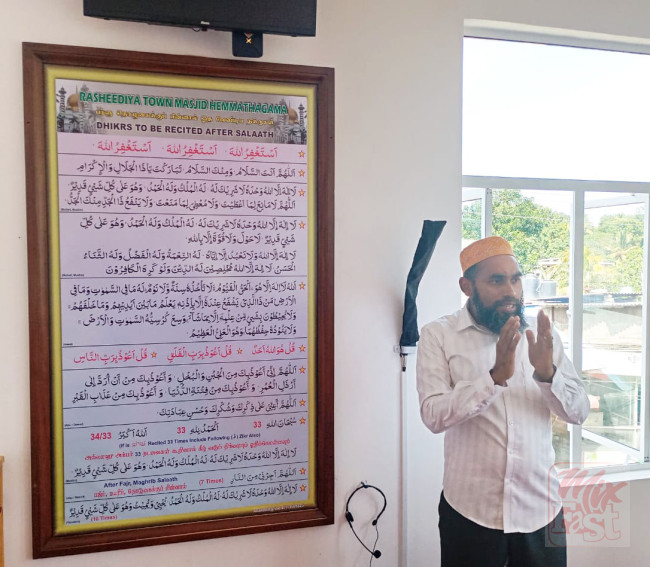 RASHEEDIYA TOWN MASJID HEMMATHAGAMA
DHIKRS TO BE RECITED AFTER SALAATH
اَسْتَغْفِرُ اللهَ اَسْتَغْفِرُ اللهَ اَسْتَغْفِرُ اللهَ
اَللّٰهُمَّ اَنْتَ السَّلَامُ، وَمِنْكَ السَّلَامُ، تَبَارَكْتَ يَا ذَا الْجَلَالِ وَالْإِكْرَامِ
لَا اِلٰهَ اِلَّا اللهُ وَحْدَهُ لَا شَرِيْكَ لَهُ، لَهُ الْمُلْكُ وَلَهُ الْحَمْدُ، وَهُوَ عَلٰى كُلِّ شَيْئٍ قَدِيْرٌ
اَللّٰهُمَّ لَا مَانِعَ لِمَا اَعْطَيْتَ، وَلَا مُعْطِيَ لِمَا مَنَعْتَ، وَلَا يَنْفَعُ ذَا الْجَدِّ مِنْكَ الْجَدُّ
لَا اِلٰهَ اِلَّا اللهُ وَحْدَهُ لَا شَرِيْكَ لَهُ، لَهُ الْمُلْكُ وَلَهُ الْحَمْدُ، وَهُوَ عَلٰى كُلِّ
شَيْئٍ قَدِيْرٌ، لَا حَوْلَ وَلَا قُوَّةَ اِلَّا بِاللهِ
لَا اِلٰهَ اِلَّا اللهُ وَلَا نَعْبُدُ اِلَّا اِيَّاهُ، لَهُ النِّعْمَةُ وَلَهُ الْفَضْلُ وَلَهُ الثَّنَاءُ
الْحَسَنُ، لَا اِلٰهَ اِلَّا اللهُ مُخْلِصِيْنَ لَهُ الدِّيْنَ وَلَوْ كَرِهَ الْكَافِرُوْنَ
اَللهُ لَا اِلٰهَ اِلَّا هُوَ، الْحَيُّ الْقَيُّوْمُ، لَا تَأْخُذُهُ سِنَةٌ وَّلَا نَوْمٌ، لَهُ مَا فِي السَّمٰوٰتِ وَمَا فِي
الْاَرْضِ، مَنْ ذَا الَّذِيْ يَشْفَعُ عِنْدَهُ اِلَّا بِاِذْنِهِ، يَعْلَمُ مَا بَيْنَ اَيْدِيْهِمْ وَمَا خَلْفَهُمْ
وَلَا يُحِيْطُوْنَ بِشَيْئٍ مِّنْ عِلْمِهِ اِلَّا بِمَا شَاءَ، وَسِعَ كُرْسِيُّهُ السَّمٰوٰتِ وَالْاَرْضَ
وَلَا يَئُوْدُهُ حِفْظُهُمَا وَهُوَ الْعَلِيُّ الْعَظِيْمُ
قُلْ هُوَ اللهُ اَحَدٌ قُلْ اَعُوْذُ بِرَبِّ الْفَلَقِ قُلْ اَعُوْذُ بِرَبِّ النَّاسِ
اَللّٰهُمَّ اِنِّيْ اَعُوْذُ بِكَ مِنَ الْجُبْنِ وَالْبُخْلِ، وَ اَعُوْذُ بِكَ مِنْ اَنْ اُرَدَّ اِلٰى
اَرْذَلِ الْعُمُرِ، وَ اَعُوْذُ بِكَ مِنْ فِتْنَةِ الدُّنْيَا، وَ اَعُوْذُ بِكَ مِنْ عَذَابِ الْقَبْرِ
اَللّٰهُمَّ اَعِنِّيْ عَلٰى ذِكْرِكَ وَشُكْرِكَ وَحُسْنِ عِبَادَتِكَ
سُبْحَانَ اللهِ 33 اَلْحَمْدُ لِلّٰهِ 33 اَللهُ اَكْبَرُ 34/33
Recited 33 Times Include Following Zikr Also)
لَا اِلٰهَ اِلَّا اللهُ وَحْدَهُ لَا شَرِيْكَ لَهُ، لَهُ الْمُلْكُ وَلَهُ الْحَمْدُ، وَهُوَ عَلٰى كُلِّ شَيْئٍ قَدِيْرٌ
After Fajr, Maghrib Salaath (7 Times) اَللّٰهُمَّ اَجِرْنِيْ مِنَ النَّارِ
لَا اِلٰهَ اِلَّا اللهُ وَحْدَهُ لَا شَرِيْكَ لَهُ، لَهُ الْمُلْكُ وَلَهُ الْحَمْدُ، يُحْيِيْ وَيُمِيْتُ وَهُوَ عَلٰى كُلِّ شَيْئٍ قَدِيْرٌ
(10 Times)